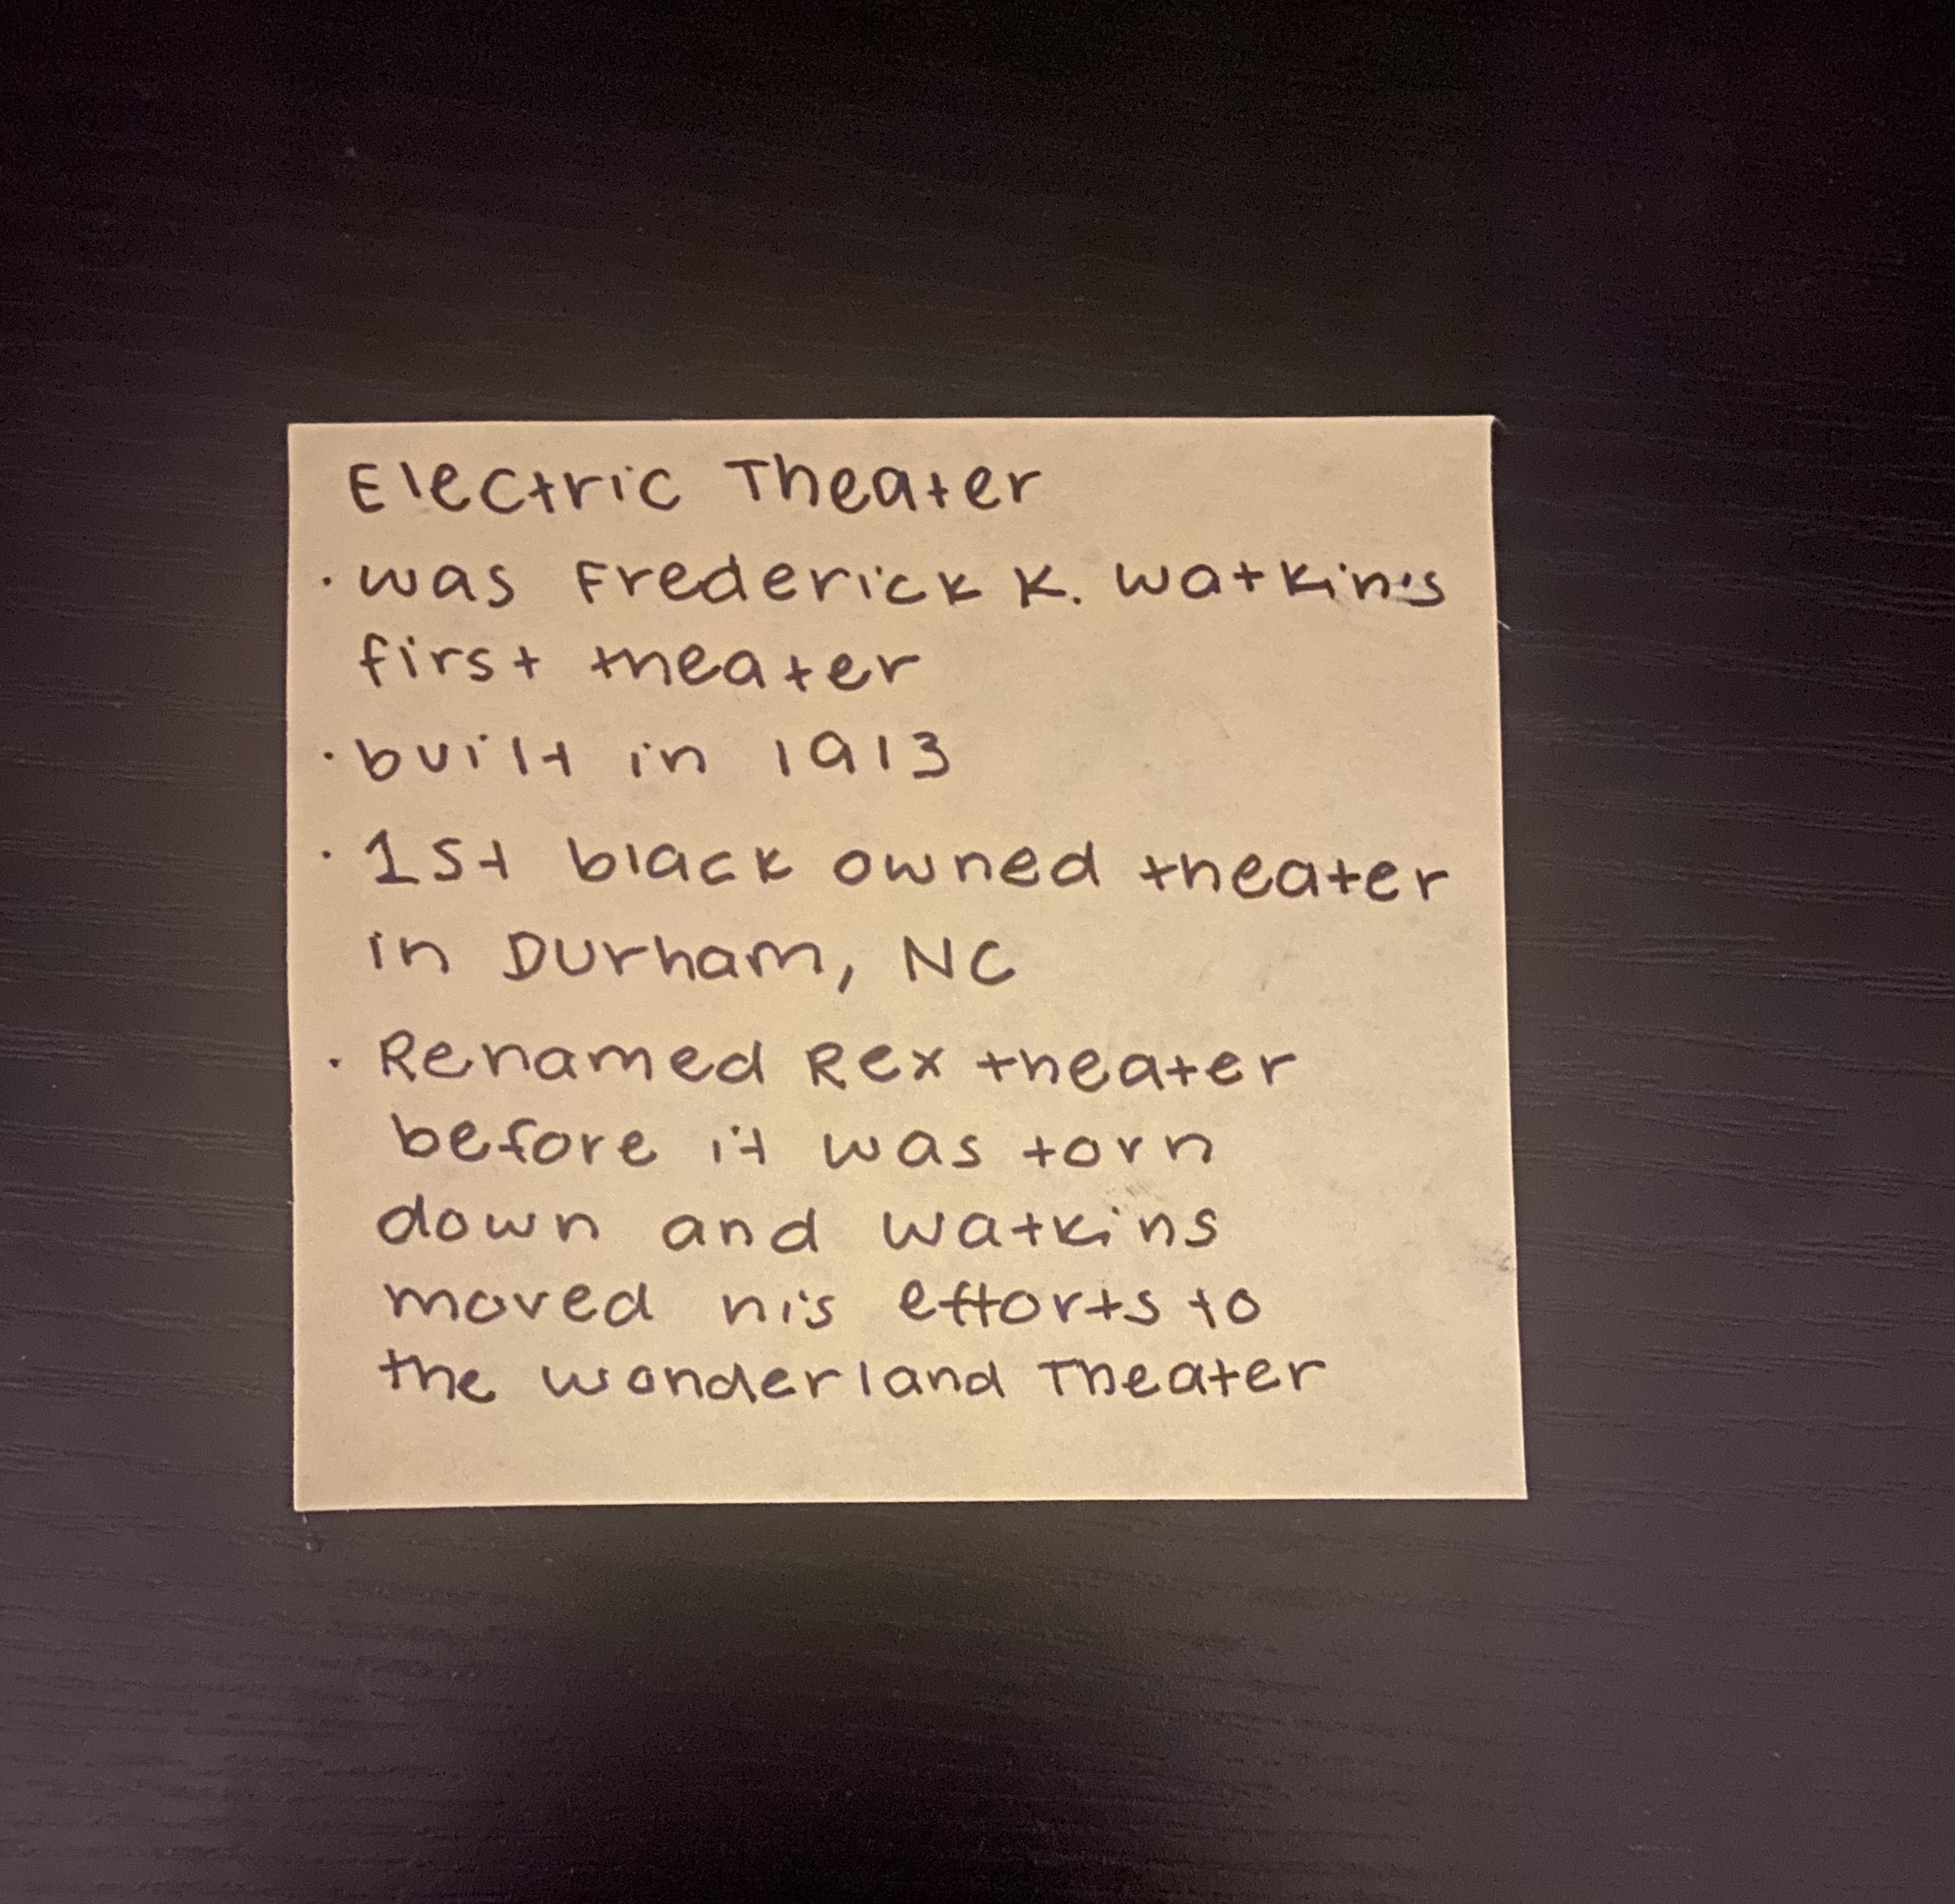 Electric Theater
· was Frederick K. Watkin's
first theater
· built in 1913
· 1st black owned theater
in Durham, NC
· Renamed Rex theater
before it was torn
down and Watkins
moved his efforts to
the Wonderland Theater